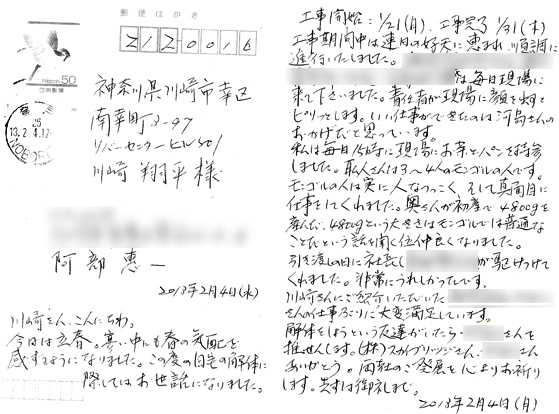 郵便はがき
Nippon 50
212-0016
神奈川県川崎市幸区
南幸町3-97
リバーセンタービル501
川崎 翔平様
阿部 恵一
2013年2月4日(水)
川崎さん、こんにちわ。
今日は立春。寒い中にも春の気配を
感ずるようになりました。この度の自宅の解体に
際してはお世話になりました。
工事開始:1/21(月)、工事完了 1/31(木)
工事期間中は連日の好天に恵まれ、順調に
進行いたしました。
な毎日現場に
来て下さいました。責任者が現場に顔を出すと
ピリッとします。いい仕事ができたのは河島さんの
おかげだと思っています。
私は毎日15時に現場にお茶とパンを持参
しました。職人さんは3〜4人のモンゴルの人です。
モンゴルの人は実に人なつっこく、そして真面目に
仕事をしてくれました。奥さんが初産で4800gを
産んだ、4800gという大きさはモンゴルでは普通な
ことだという話を聞く位仲良くなりました。
引き渡しの日に社長( が駆けつけて
くれました。非常にうれしかったです。
川崎さんにご紹介いただいた
さんの仕事ぶりに大変満足しています。
解体をしようという友達がいたら さんを
推せんします。(株)スカイブリッジさん、 さん
ありがとう。両社のご発展を心よりお祈り
します。先ずは御礼まで。
2013年2月4日(月)